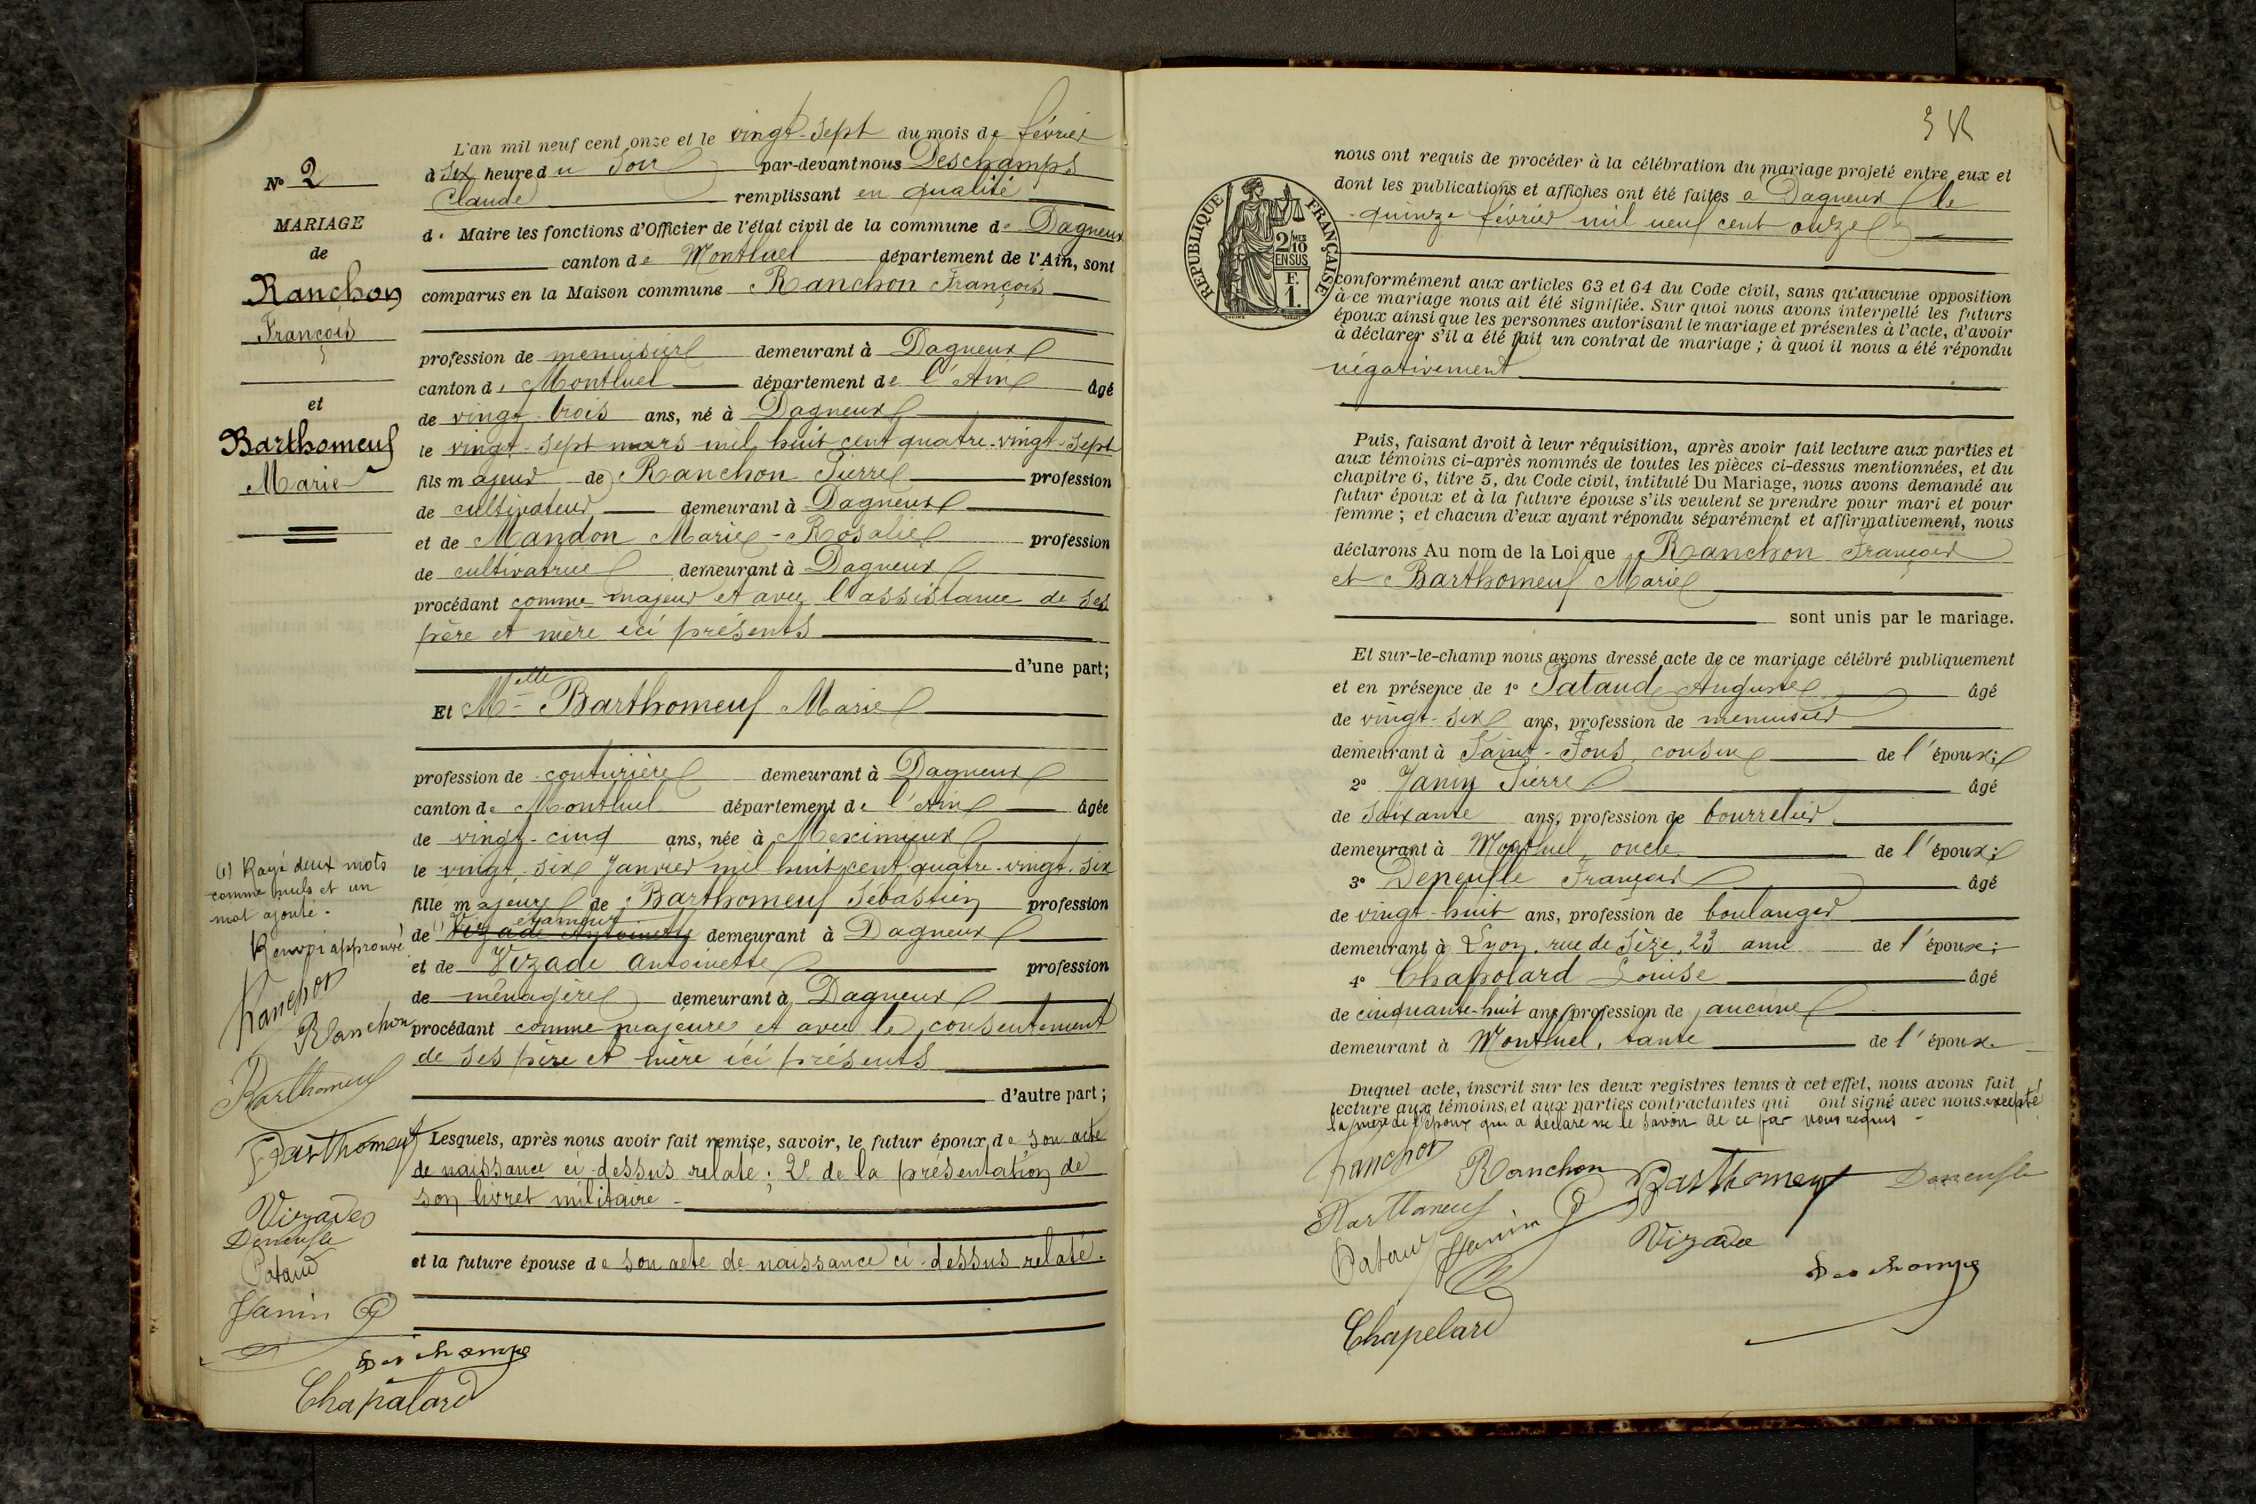 N° 2
MARIAGE
de
Ranchon
François
et
Barthomeuf
Marie
(1) Rayé deux mots
comme nuls et un
mot ajouté.
Renvoi approuvé
Ranchon
Ranchon
Barthomeuf
Barthomeuf
Vizade
Pataud
Janin
Deschamps
Chapalard
L'an mil neuf cent onze et le vingt-sept du mois de février
à six heure du soir par-devant nous Deschamps
Claude remplissant en qualité
de Maire les fonctions d'Officier de l'état civil de la commune de Dagneux
canton de Montluel département de l'Ain, sont
comparus en la Maison commune Ranchon François
profession de menuisier demeurant à Dagneux
canton de Montluel département de l'Ain âgé
de vingt-trois ans, né à Dagneux
le vingt-sept mars mil huit cent quatre-vingt-sept
fils majeur de Ranchon Pierre profession
de cultivateur demeurant à Dagneux
et de Mandon Marie-Rosalie profession
de cultivatrice demeurant à Dagneux
procédant comme majeur et avec l'assistance de ses
père et mère ici présents
d'une part;
Et Melle Barthomeuf Marie
profession de couturière demeurant à Dagneux
canton de Montluel département de l'Ain âgée
de vingt-cinq ans, née à Meximieux
le vingt-six Janvier mil huit cent quatre-vingt-six
fille majeure de Barthomeuf Sébastien profession
de (1) Vizade Antoinette étameur demeurant à Dagneux
et de Vizade Antoinette profession
de ménagère demeurant à Dagneux
procédant comme majeure et avec le consentement
de ses père et mère ici présents
d'autre part;
Lesquels, après nous avoir fait remise, savoir, le futur époux, de son acte
de naissance ci-dessus relaté; 2° de la présentation de
son livret militaire -
et la future épouse de son acte de naissance ci-dessus relaté.
nous ont requis de procéder à la célébration du mariage projeté entre eux et
dont les publications et affiches ont été faites à Dagneux le
quinze février mil neuf cent onze
RÉPUBLIQUE FRANÇAISE
2/10 MES
EN SUS
F.
1.
conformément aux articles 63 et 64 du Code civil, sans qu'aucune opposition
à ce mariage nous ait été signifiée. Sur quoi nous avons interpellé les futurs
époux ainsi que les personnes autorisant le mariage et présentes à l'acte, d'avoir
à déclarer s'il a été fait un contrat de mariage; à quoi il nous a été répondu
négativement
Puis, faisant droit à leur réquisition, après avoir fait lecture aux parties et
aux témoins ci-après nommés de toutes les pièces ci-dessus mentionnées, et du
chapitre 6, titre 5, du Code civil, intitulé Du Mariage, nous avons demandé au
futur époux et à la future épouse s'ils veulent se prendre pour mari et pour
femme; et chacun d'eux ayant répondu séparément et affirmativement, nous
déclarons Au nom de la Loi que Ranchon François
et Barthomeuf Marie
sont unis par le mariage.
Et sur-le-champ nous avons dressé acte de ce mariage célébré publiquement
et en présence de 1° Pataud Auguste âgé
de vingt-six ans, profession de menuisier
demeurant à Saint-Fons, cousin de l'époux;
2° Janin Pierre âgé
de soixante ans, profession de bourrelier
demeurant à Montluel, oncle de l'époux;
3° François âgé
de vingt-huit ans, profession de boulanger
demeurant à Lyon, rue de Sèze, 23 ami de l'époux;
4° Chapolard Louise âgé
de cinquante-huit ans, profession de aucune
demeurant à Montluel, tante de l'époux.
Duquel acte, inscrit sur les deux registres tenus à cet effet, nous avons fait
lecture aux témoins et aux parties contractantes qui ont signé avec nous excepté
la mère de l'époux qui a déclaré ne le savoir de ce par nous requis -
Ranchon Ranchon Barthomeuf
Barthomeuf
Pataud Janin Vizade
Deschamps
Chapelard